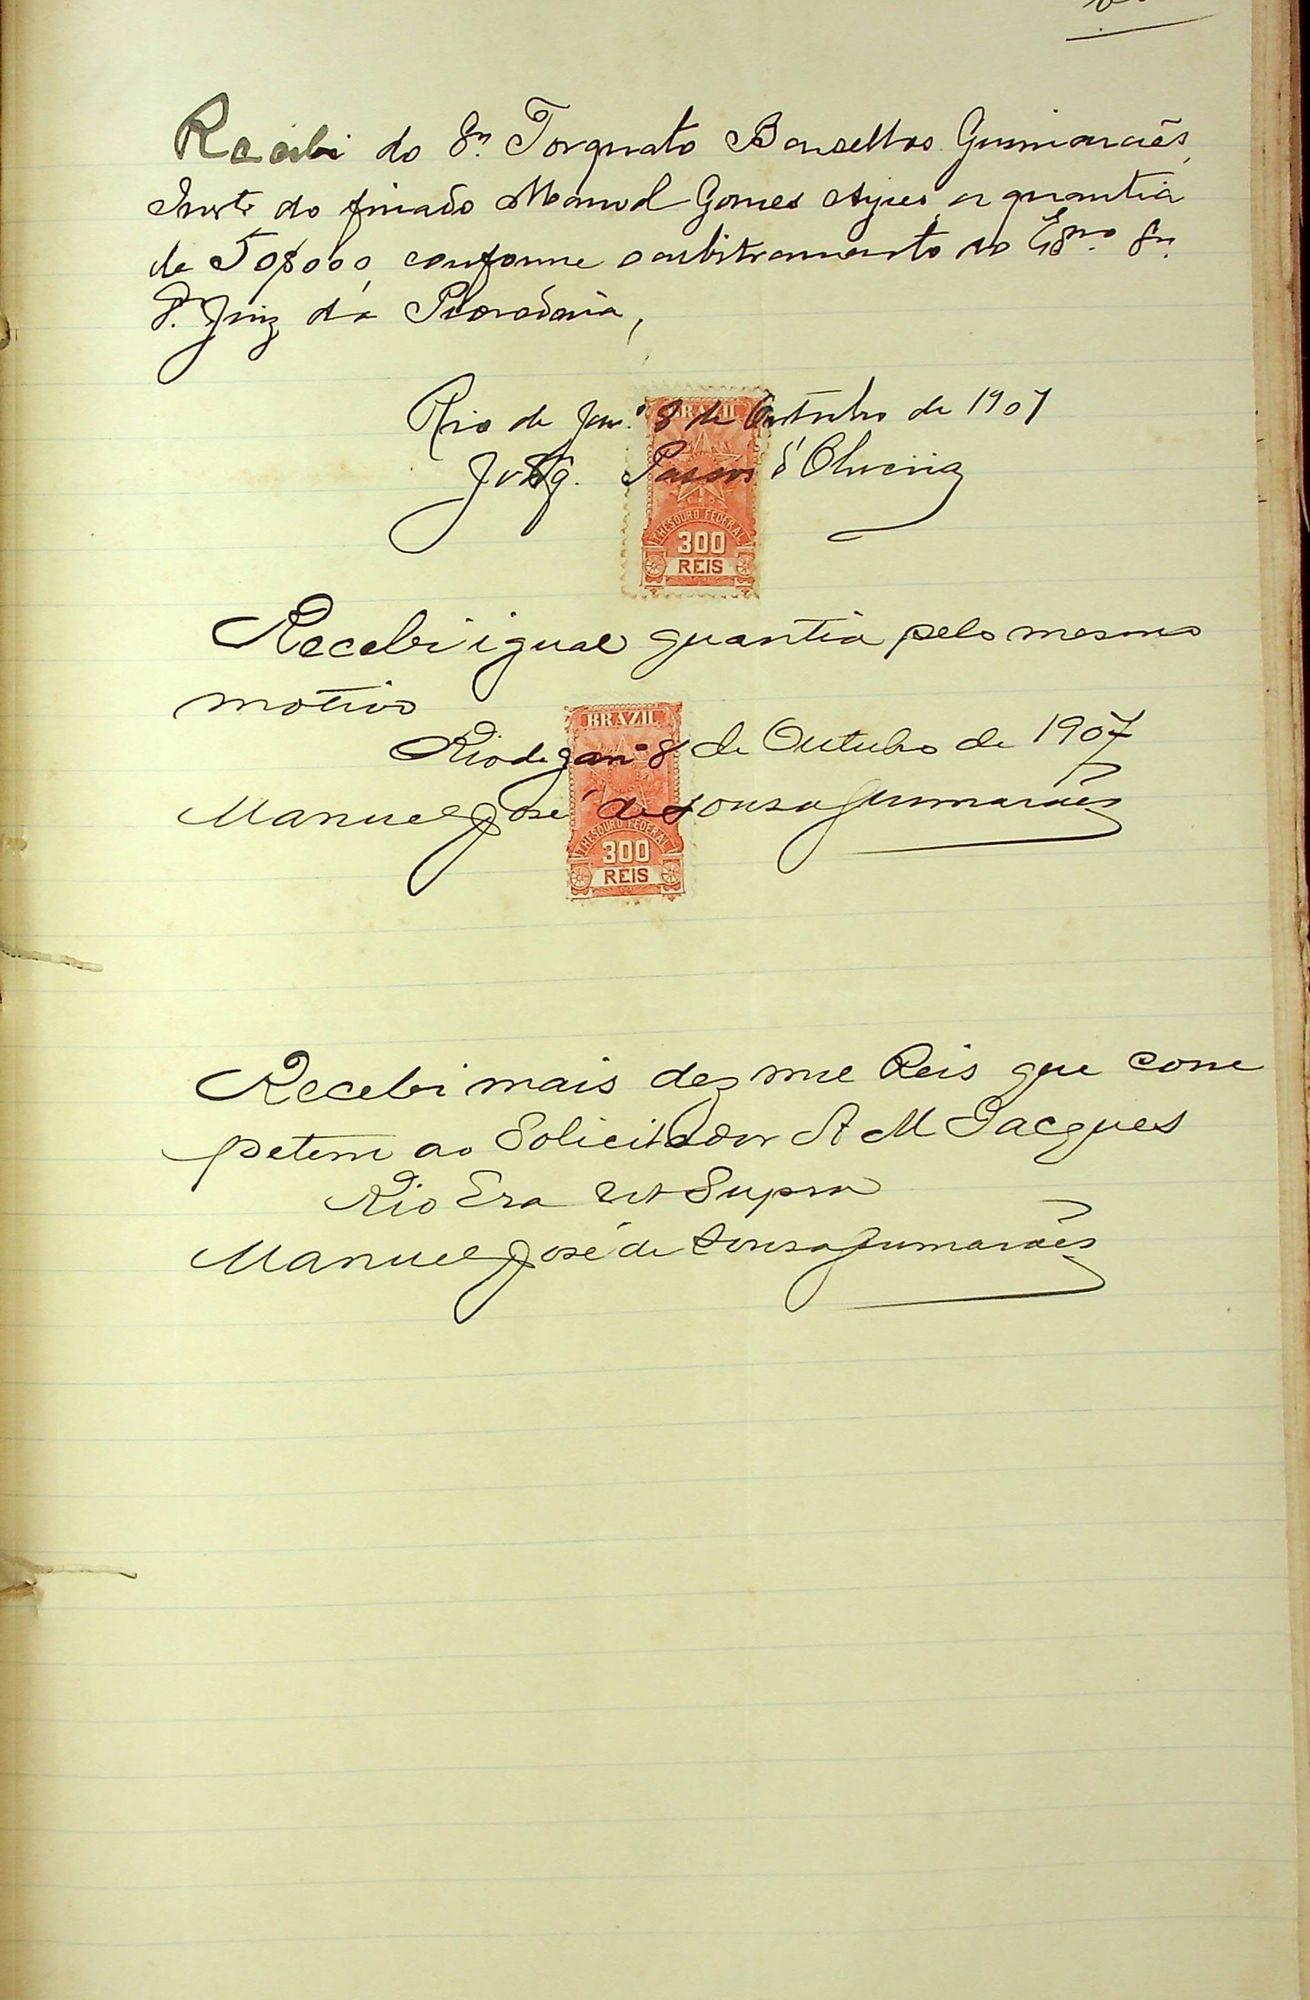 Recebi do Snr. Torquato Guimarães,
Invte do finado Manoel Gomes Ayres, a quantia
de 50$000, conforme o arbitramento do Exmo Snr.
Dr. Juiz da
Rio de Janro 8 de Outubro de 1907
Passos d'Oliveira
BRAZIL
THESOURO FEDERAL
300
REIS
Recebi igual quantia pelo mesmo
motivo
Rio de Janº 8 de Outubro de 1907
Manuel José de Sousa Guimarães
BRAZIL
THESOURO FEDERAL
300
REIS
Recebi mais dez mil Reis que com
petem ao Solicitador A M Jacques
Rio Era Ut Supra
Manuel José de Sousa Guimarães